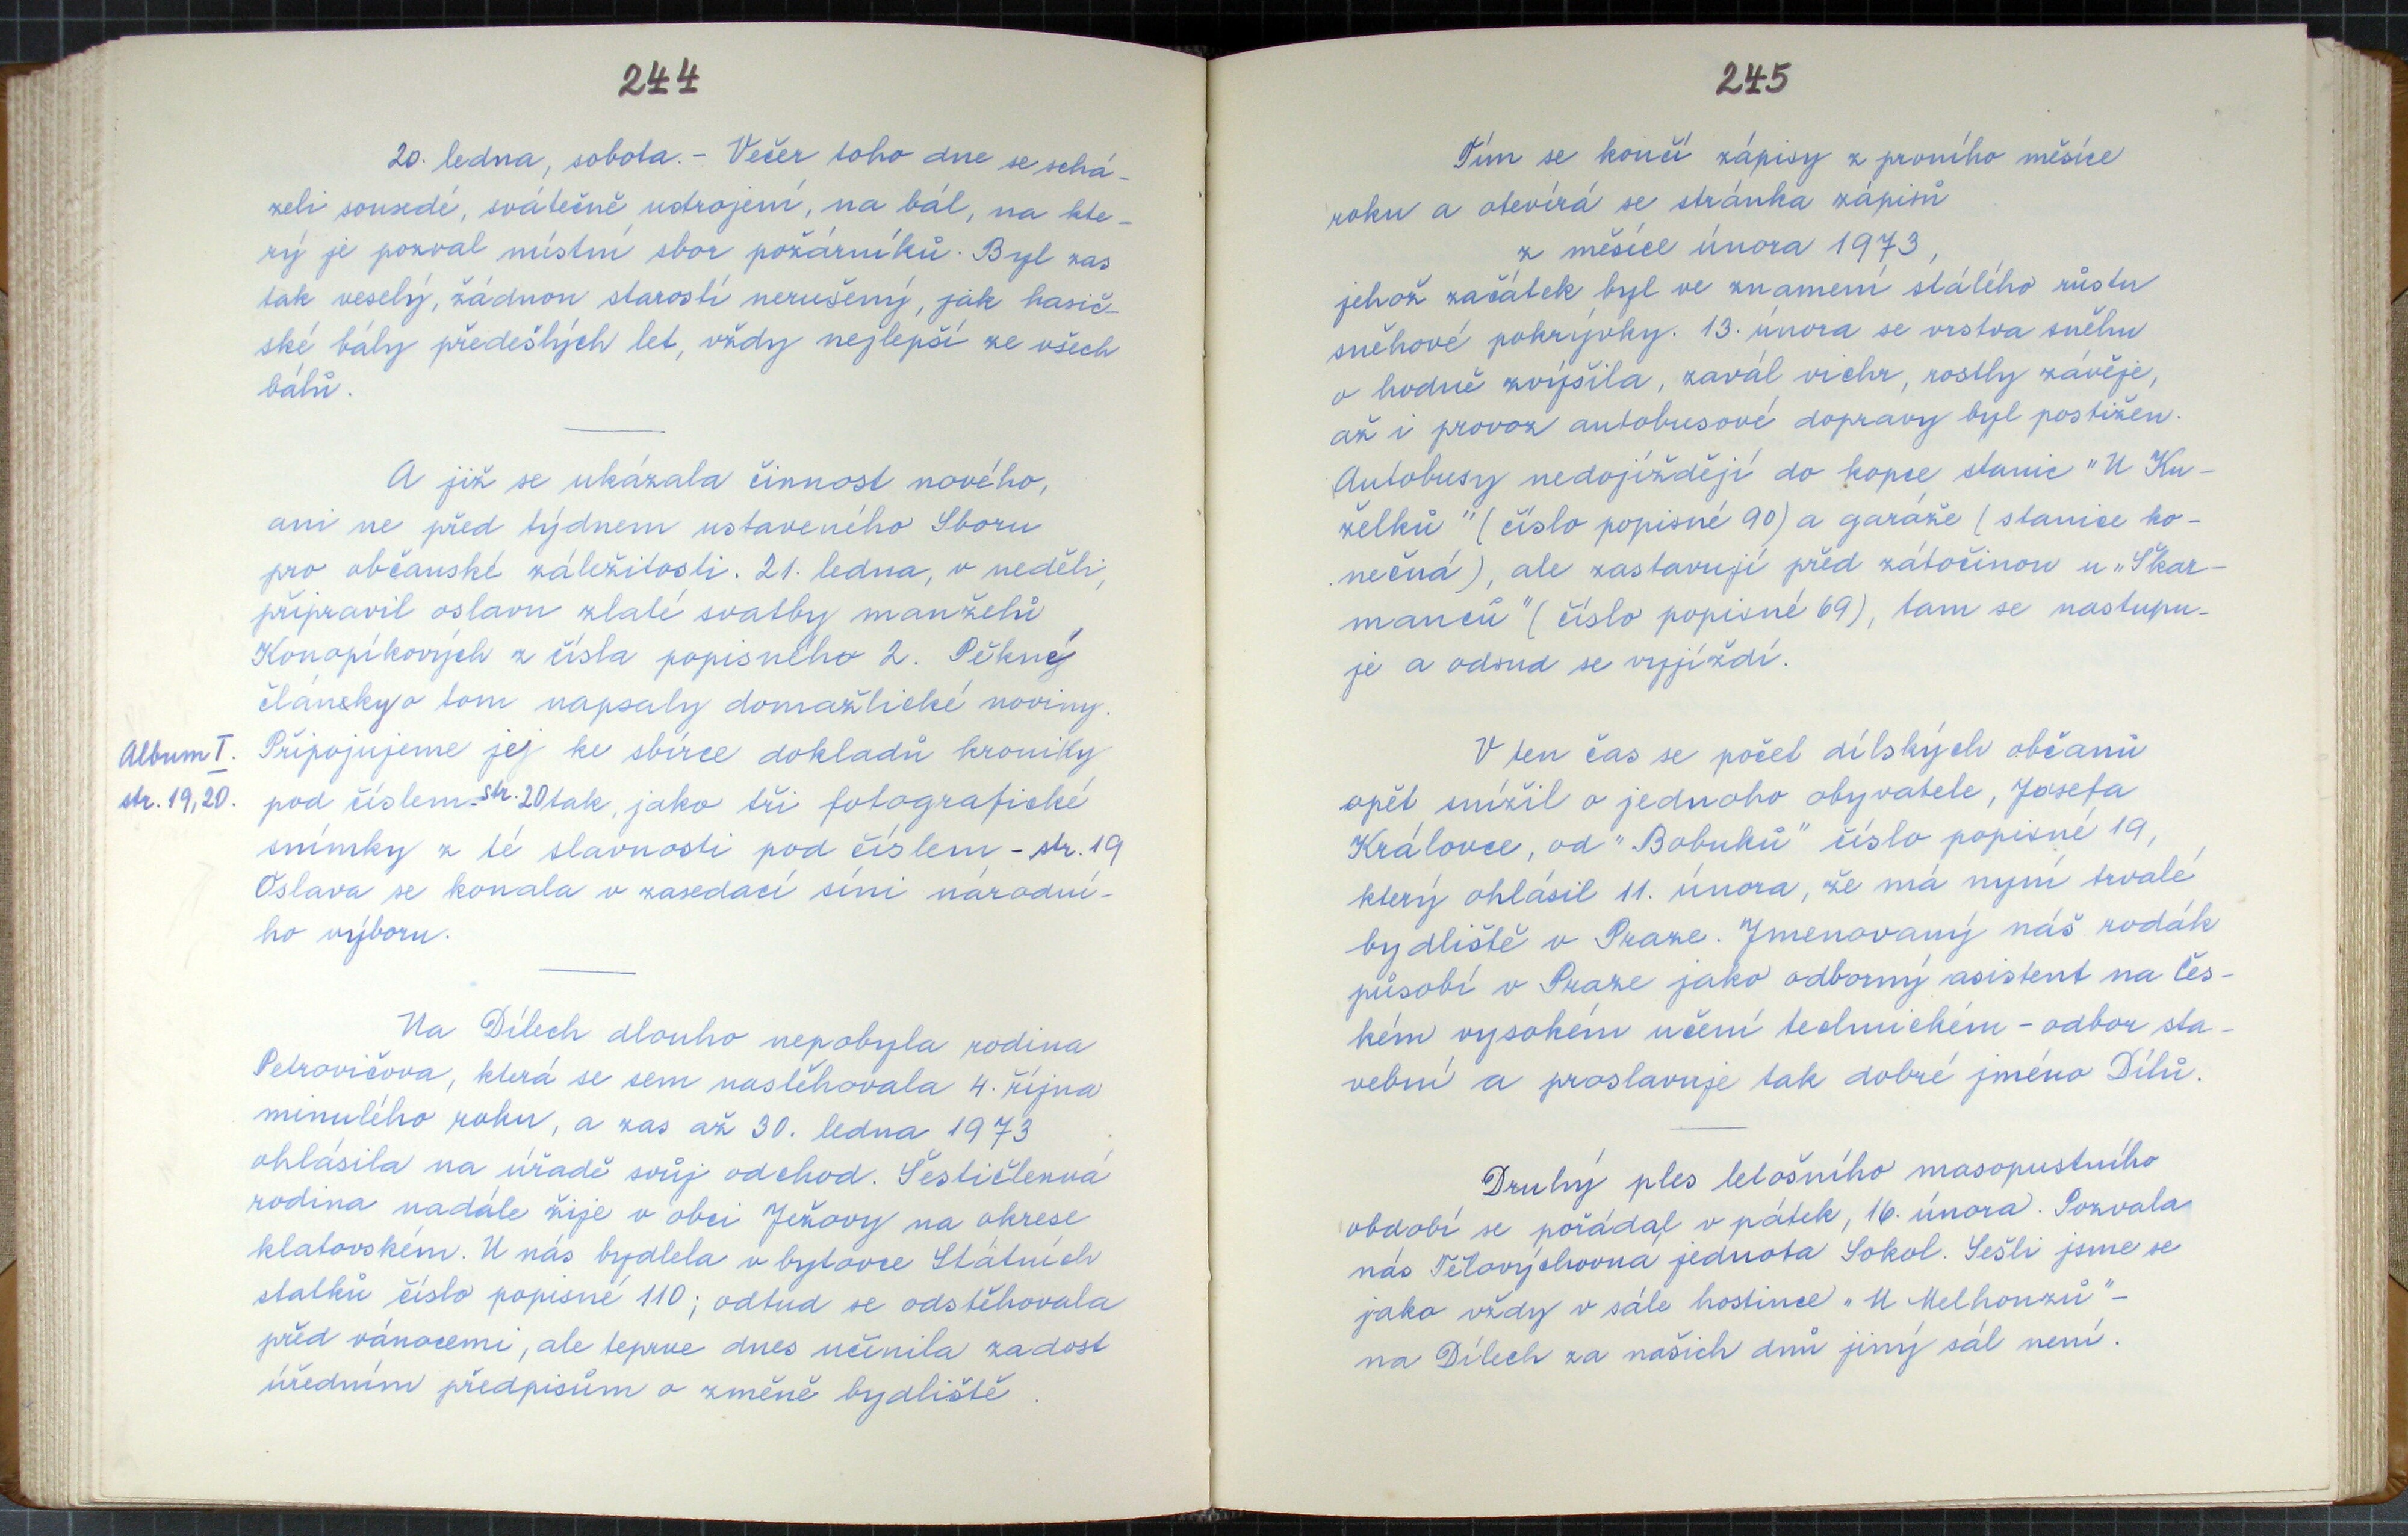 244
20. ledna, sobota. - Večer toho dne se schá-
zeli sousedé, svátečně ustrojení, na bál, na kte-
rý je pozval místní sbor požárníků. Byl zas
tak veselý, žádnou starostí nerušený, jak hasič-
ské bály předešlých let, vždy nejlepší ze všech
bálů.
A již se ukázala činnost nového,
ani ne před týdnem ustaveného Sboru
pro občanské záležitosti. 21. ledna, v neděli,
připravil oslavu zlaté svatby manželů
Konopíkových z čísla popisného 2. Pěkné
články o tom napsaly domažlické noviny.
Album I.
str. 19, 20.
Připojujeme jej ke sbírce dokladů kroniky
pod číslem - str. 20 tak, jako tři fotografické
snímky z té slavnosti pod číslem - str. 19
Oslava se konala v zasedací síni národní-
ho výboru.
Na Dílech dlouho nepobyla rodina
Petrovičova, která se sem nastěhovala 4. října
minulého roku, a zas až 30. ledna 1973
ohlásila na úřadě svůj odchod. Šestičlenná
rodina nadále žije v obci Ježovy na okrese
klatovském. U nás bydlela v bytovce Státních
statků číslo popisné 110; odtud se odstěhovala
před vánocemi, ale teprve dnes učinila zadost
úředním předpisům o změně bydliště.
245
Tím se končí zápisy z prvního měsíce
roku a otevírá se stránka zápisů
z měsíce února 1973,
jehož začátek byl ve znamení stálého růstu
sněhové pokrývky. 13. února se vrstva sněhu
o hodně zvýšila, zavál vichr, rostly závěje,
až i provoz autobusové dopravy byl postižen.
Autobusy nedojíždějí do kopce stanic "U Ku-
želků" (číslo popisné 90) a garáže (stanice ko-
nečná), ale zastavují před zátočinou u "Škar-
manců" (číslo popisné 69), tam se nastupu-
je a odsud se vyjíždí.
V ten čas se počet dílských občanů
opět snížil o jednoho obyvatele, Josefa
Královce, od "Bobuků" číslo popisné 19,
který ohlásil 11. února, že má nyní trvalé
bydliště v Praze. Jmenovaný náš rodák
působí v Praze jako odborný asistent na Čes-
kém vysokém učení technickém - odbor sta-
vební a proslavuje tak dobré jméno Dílů.
Druhý ples letošního masopustního
období se pořádal v pátek, 16. února. Pozvala
nás Tělovýchovná jednota Sokol. Sešli jsme se
jako vždy v sále hostince "U Melhonzů" -
na Dílech za našich dnů jiný sál není.